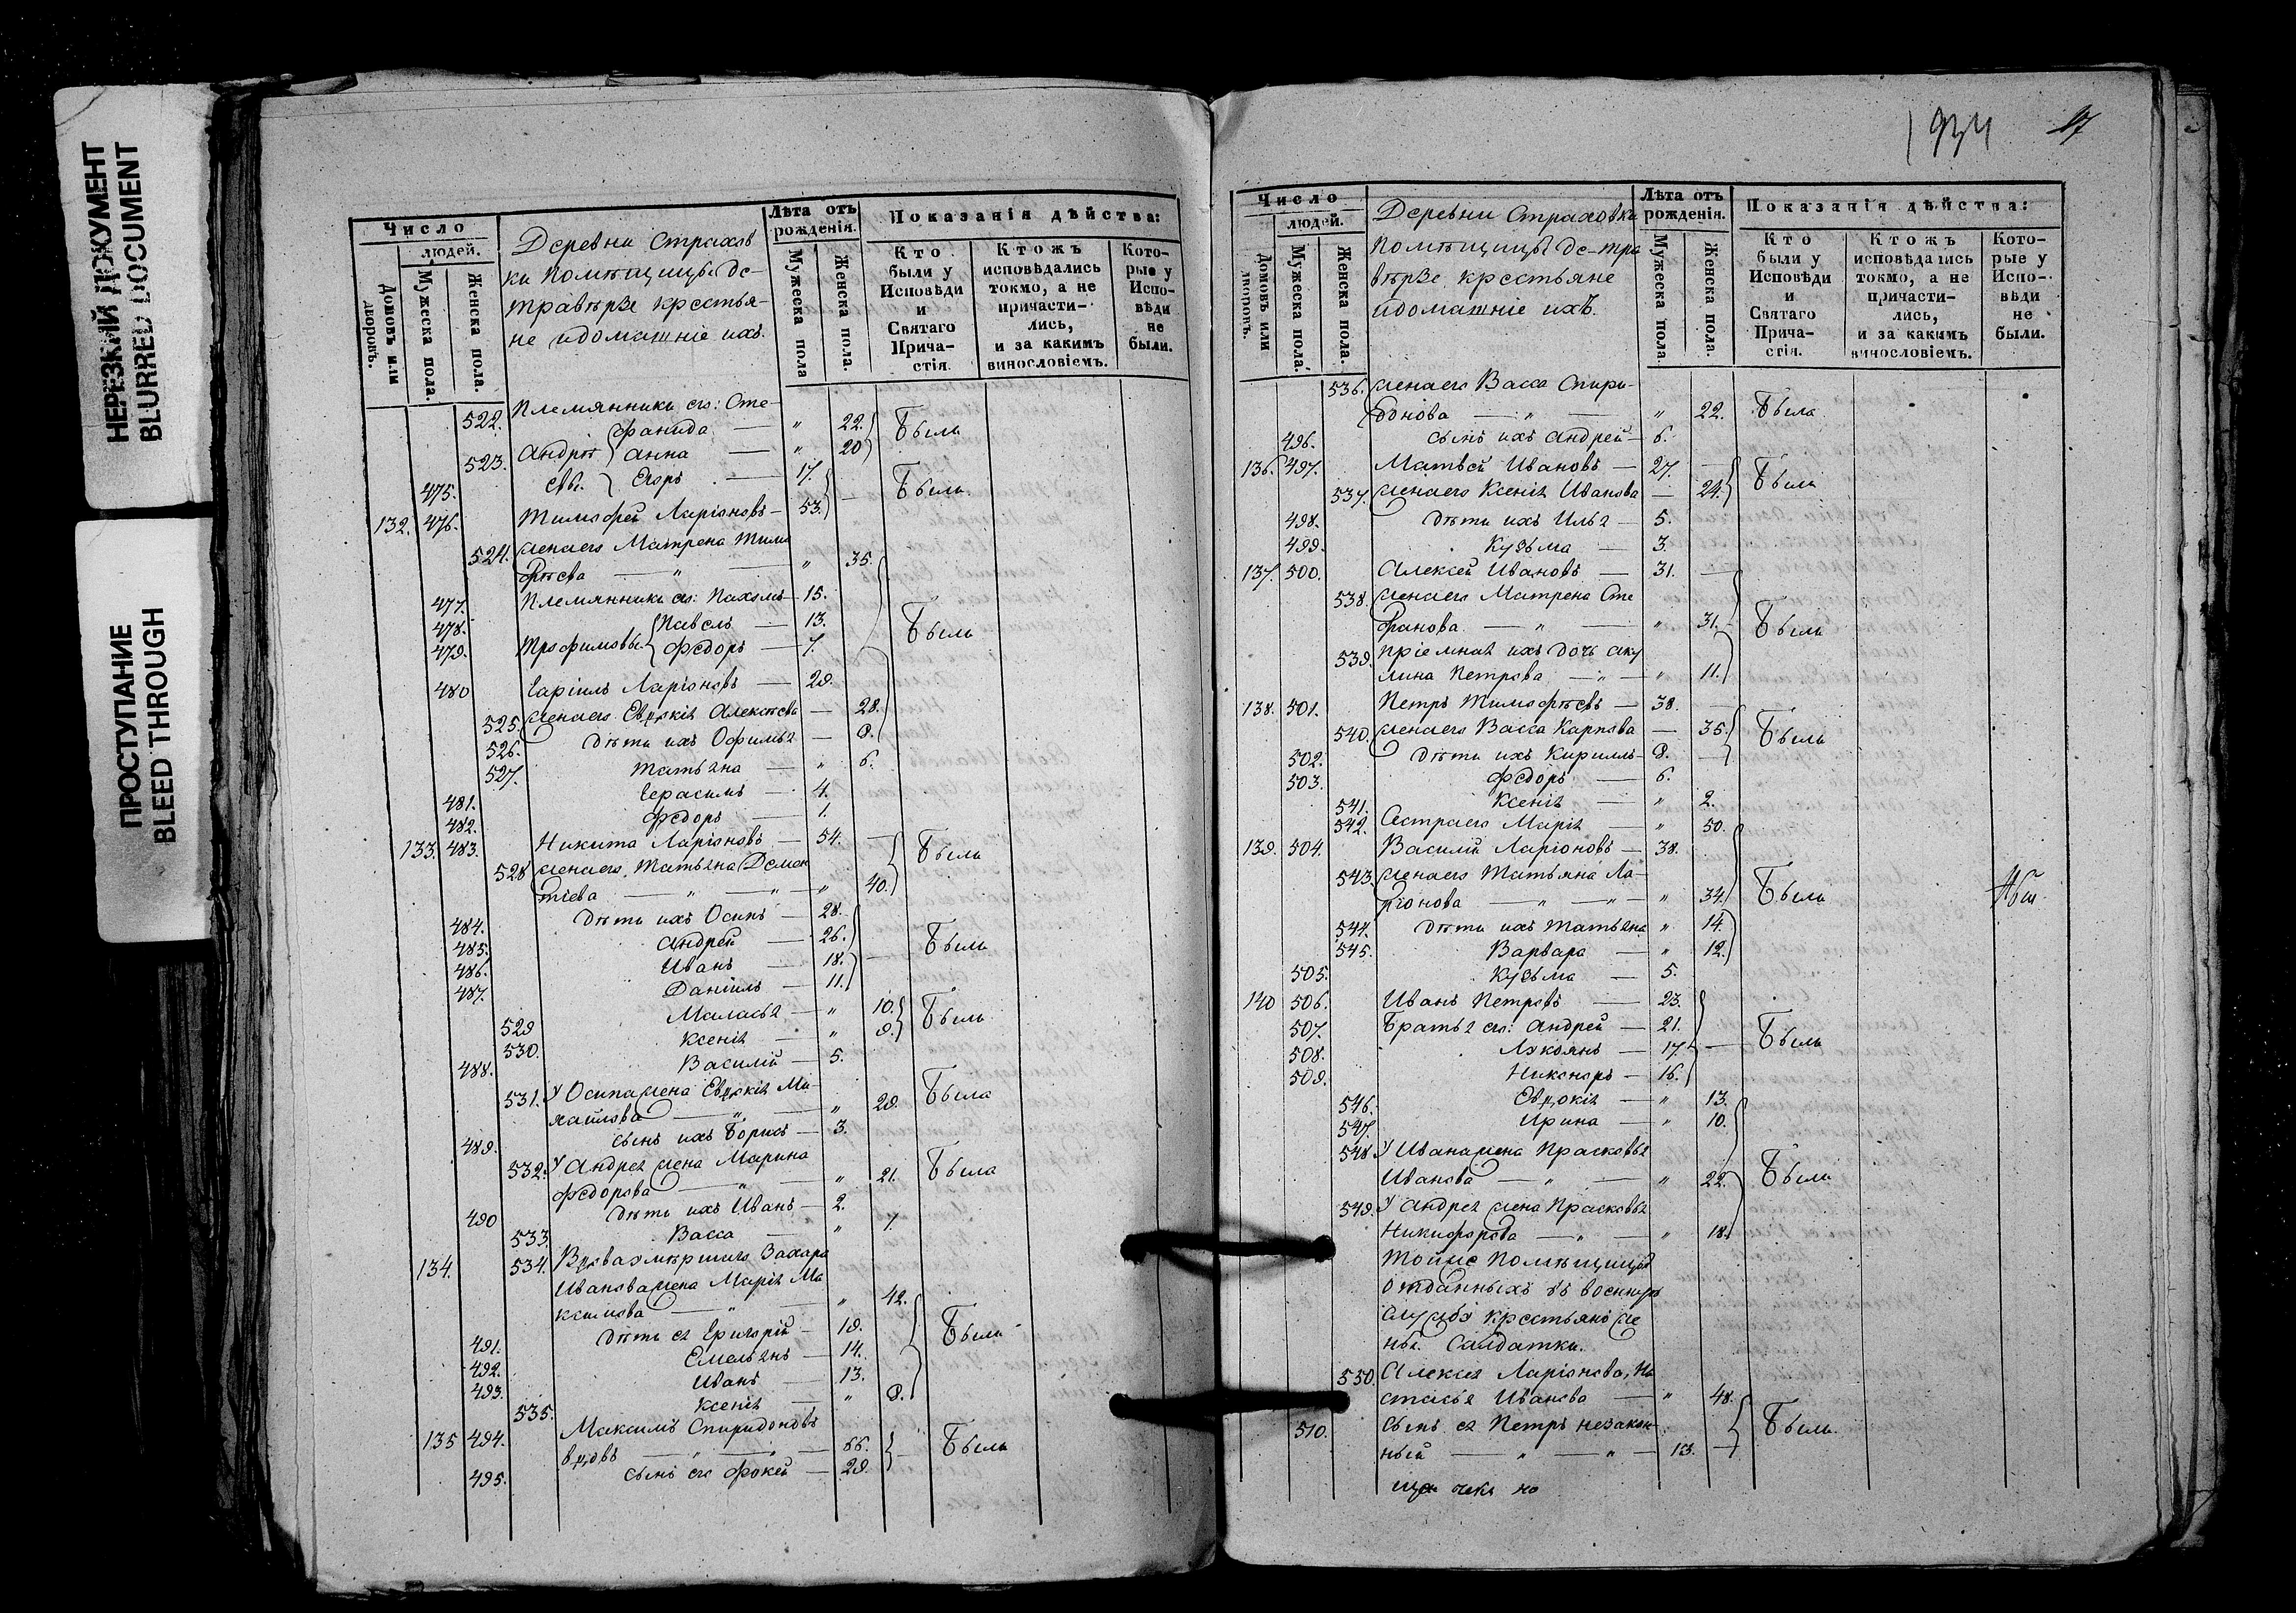 НЕРЕЗКИЙ ДОКУМЕНТ
BLURRED DOCUMENT
ПРОСТУПАНИЕ
BLEED THROUGH
Число
людей.
Домовъ или дворовъ.
Мужеска пола.
Женска пола.
Деревни Страхов
ки помѣщицы де-
травѣрзе крестья-
не идомашніе ихъ.
Лѣта отъ рожденія.
Мужеска пола
Женска пола.
Показанія дѣйства:
Кто были у Исповѣди и Святаго Причастія.
Ктожъ исповѣдались токмо, а не причастились, и за какимъ винословіемъ.
Которые у Исповѣди не были.
522. Племянники его: Сте-
фанида — " 22. Были
523. Андрѣ Анна — " 20
475. евы. Егоръ — 17. Были
132. 476. Тимофей Ларіоновъ — 53.
524. жена его Матрена Тимо
фѣева — " — " 35.
477. Племянники его: Пахомъ — 15.
478. Павелъ — 13. Были
479. Трофимовы Федоръ — 7.
480 Гаріилъ Ларіоновъ — 29.
525. жена его Евдокія Алексѣева — 28.
526. дѣти ихъ Офимья — 8.
527. Татьяна — " 6.
481. Герасимъ — 4.
482. Федоръ — 1.
133. 483. Никита Ларіоновъ — 54. Были
528 жена его Татьяна Демен
тіева — " — " — " 40.
484. дѣти ихъ Осипъ — 28.
485. Андрей — 26. Были
486. Иванъ — 18.
487. Даніилъ — 11.
529 Маласья — " 10. Были
530. Ксенія — " 9.
488. Василій — 5.
531. У Осипа жена Евдокія Ми-
хайлова — " — " 29. Была
489. сынъ ихъ Борисъ — 3.
532. У Андрея жена Марина
Федорова — " — " 21. Была
490 дѣти ихъ Иванъ — 2.
533. Васса — " 7.
134. 534. Вдова умѣршаго Захара
Иванова жена Марія Ма
ксимова — " — " 42.
491. дѣти ея Григорій — 19. Были
492. Емельянъ — 14.
493. Иванъ — 13.
535. Ксенія — " 8.
135 494. Максимъ Спиридоновъ
вдовъ — " — " — 66. Были
495. сынъ его Фокей — 29.
17
Число
людей.
Домовъ или дворовъ.
Мужеска пола.
Женска пола.
Деревни Страховки
помѣщицы де-тра
вѣрзе крестьяне
идомашніе ихъ.
Лѣта отъ рожденія.
Мужеска пола.
Женска пола.
Показанія дѣйства:
Кто были у Исповѣди и Святаго Причастія.
Ктожъ исповѣдались токмо, а не причастились, и за какимъ винословіемъ.
Которые у Исповѣди не были.
536. жена его Васса Спири-
донова — " — " 22. Была
496. сынъ ихъ Андрей — 6.
136. 497. Матвей Ивановъ — 27. Были
537. жена его Ксенія Иванова — 24.
498. дѣти ихъ Илья — 5.
499. Кузьма — 3.
137. 500. Алексей Ивановъ — 31.
538. жена его Матрена Сте
фанова — " — " 31. Были
539. пріемная ихъ дочь Аку
лина Петрова — " — " 11.
138. 501. Петръ Тимофѣевъ — 38.
540. жена его Васса Карпова — 35. Были
502. дѣти ихъ Кириллъ — 8.
503. Федоръ — 6.
541. Ксенія — " 2.
542. Сестра его Марія — " 50.
139. 504. Василій Ларіоновъ — 38.
543. жена его Татьяна Ла-
ріонова — " — " — " 34. Были
544. дѣти ихъ Татьяна " 14.
545. Варвара — " 12.
505. Кузьма — 5.
140 506. Иванъ Петровъ — 23.
507. Братья его: Андрей — 21. Были
508. Лукоянъ — 17.
509. Никоноръ — 16.
546. Евдокія — " 13.
547. Ирина — " 10.
548 У Ивана жена Прасковья
Иванова — " — " 22. Были
549. У Андрея жена Прасковья
Никифорова — " — " 18.
Тойже помѣщицы
отданныхъ въ военную
службу крестьянъ же
ны. Салдатки.
550. Алексея Ларіонова, На
стасья Иванова — " 48. Были
510. сынъ ея Петръ незакон-
ный — " — " — 13.